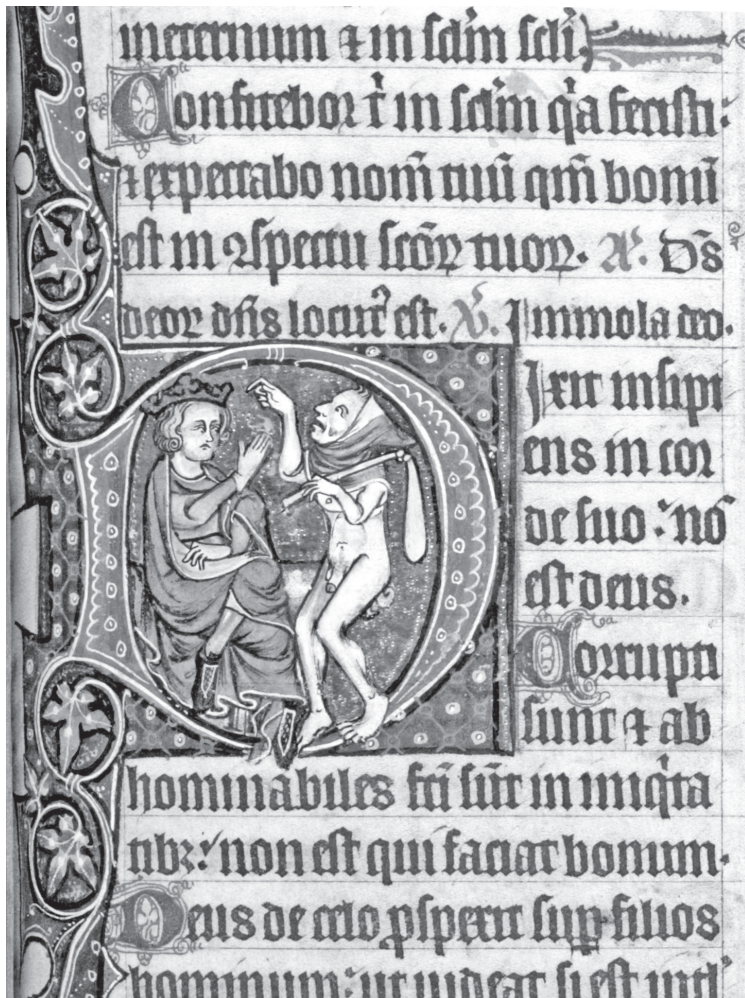 ineternum ⁊ in sclm̄ scli
Confitebor t̄ in sclm̄ qͥa fecisti:
⁊ expectabo nom̄ tuū qm̄ bonū
est in ꝯspectu scōꝝ tuoꝝ. A. Ds̄
deoꝝ dn̄s locutꝰ est. V̄. Immola deo.
Ixit insipi
ens in cor
de suo: nō
est deus.
Corrupti
sunt ⁊ ab
hominabiles fc̄i sūt in iniqͥta
tibꝫ: non est qui faciat bonum.
Deus de celo ꝓspexit suꝑ filios
hominum: ut uideat si est intl̄